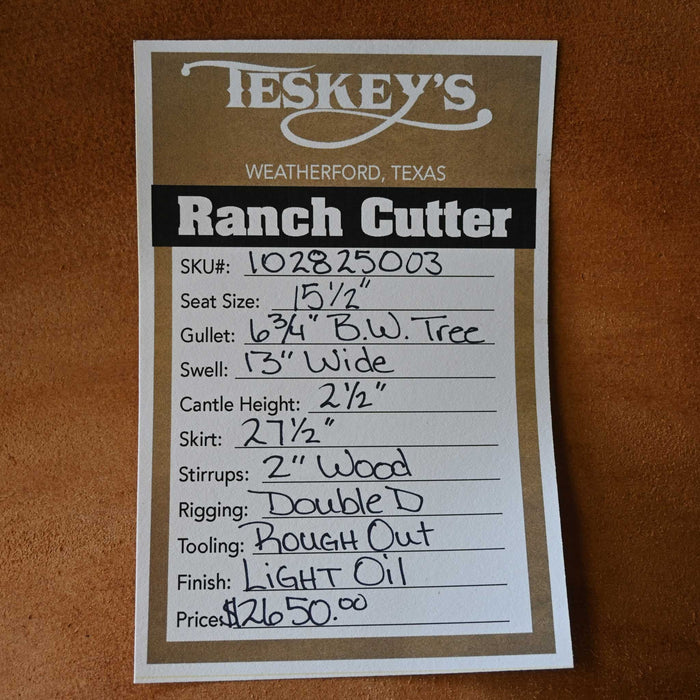 TESKEY'S
WEATHERFORD, TEXAS
Ranch Cutter
SKU#: 102825003
Seat Size: 15 1/2"
Gullet: 6 3/4" B.W. Tree
Swell: 13" Wide
Cantle Height: 2 1/2"
Skirt: 27 1/2"
Stirrups: 2" Wood
Rigging: Double D
Tooling: ROUGH Out
Finish: LIGHT Oil
Price: $2650.00